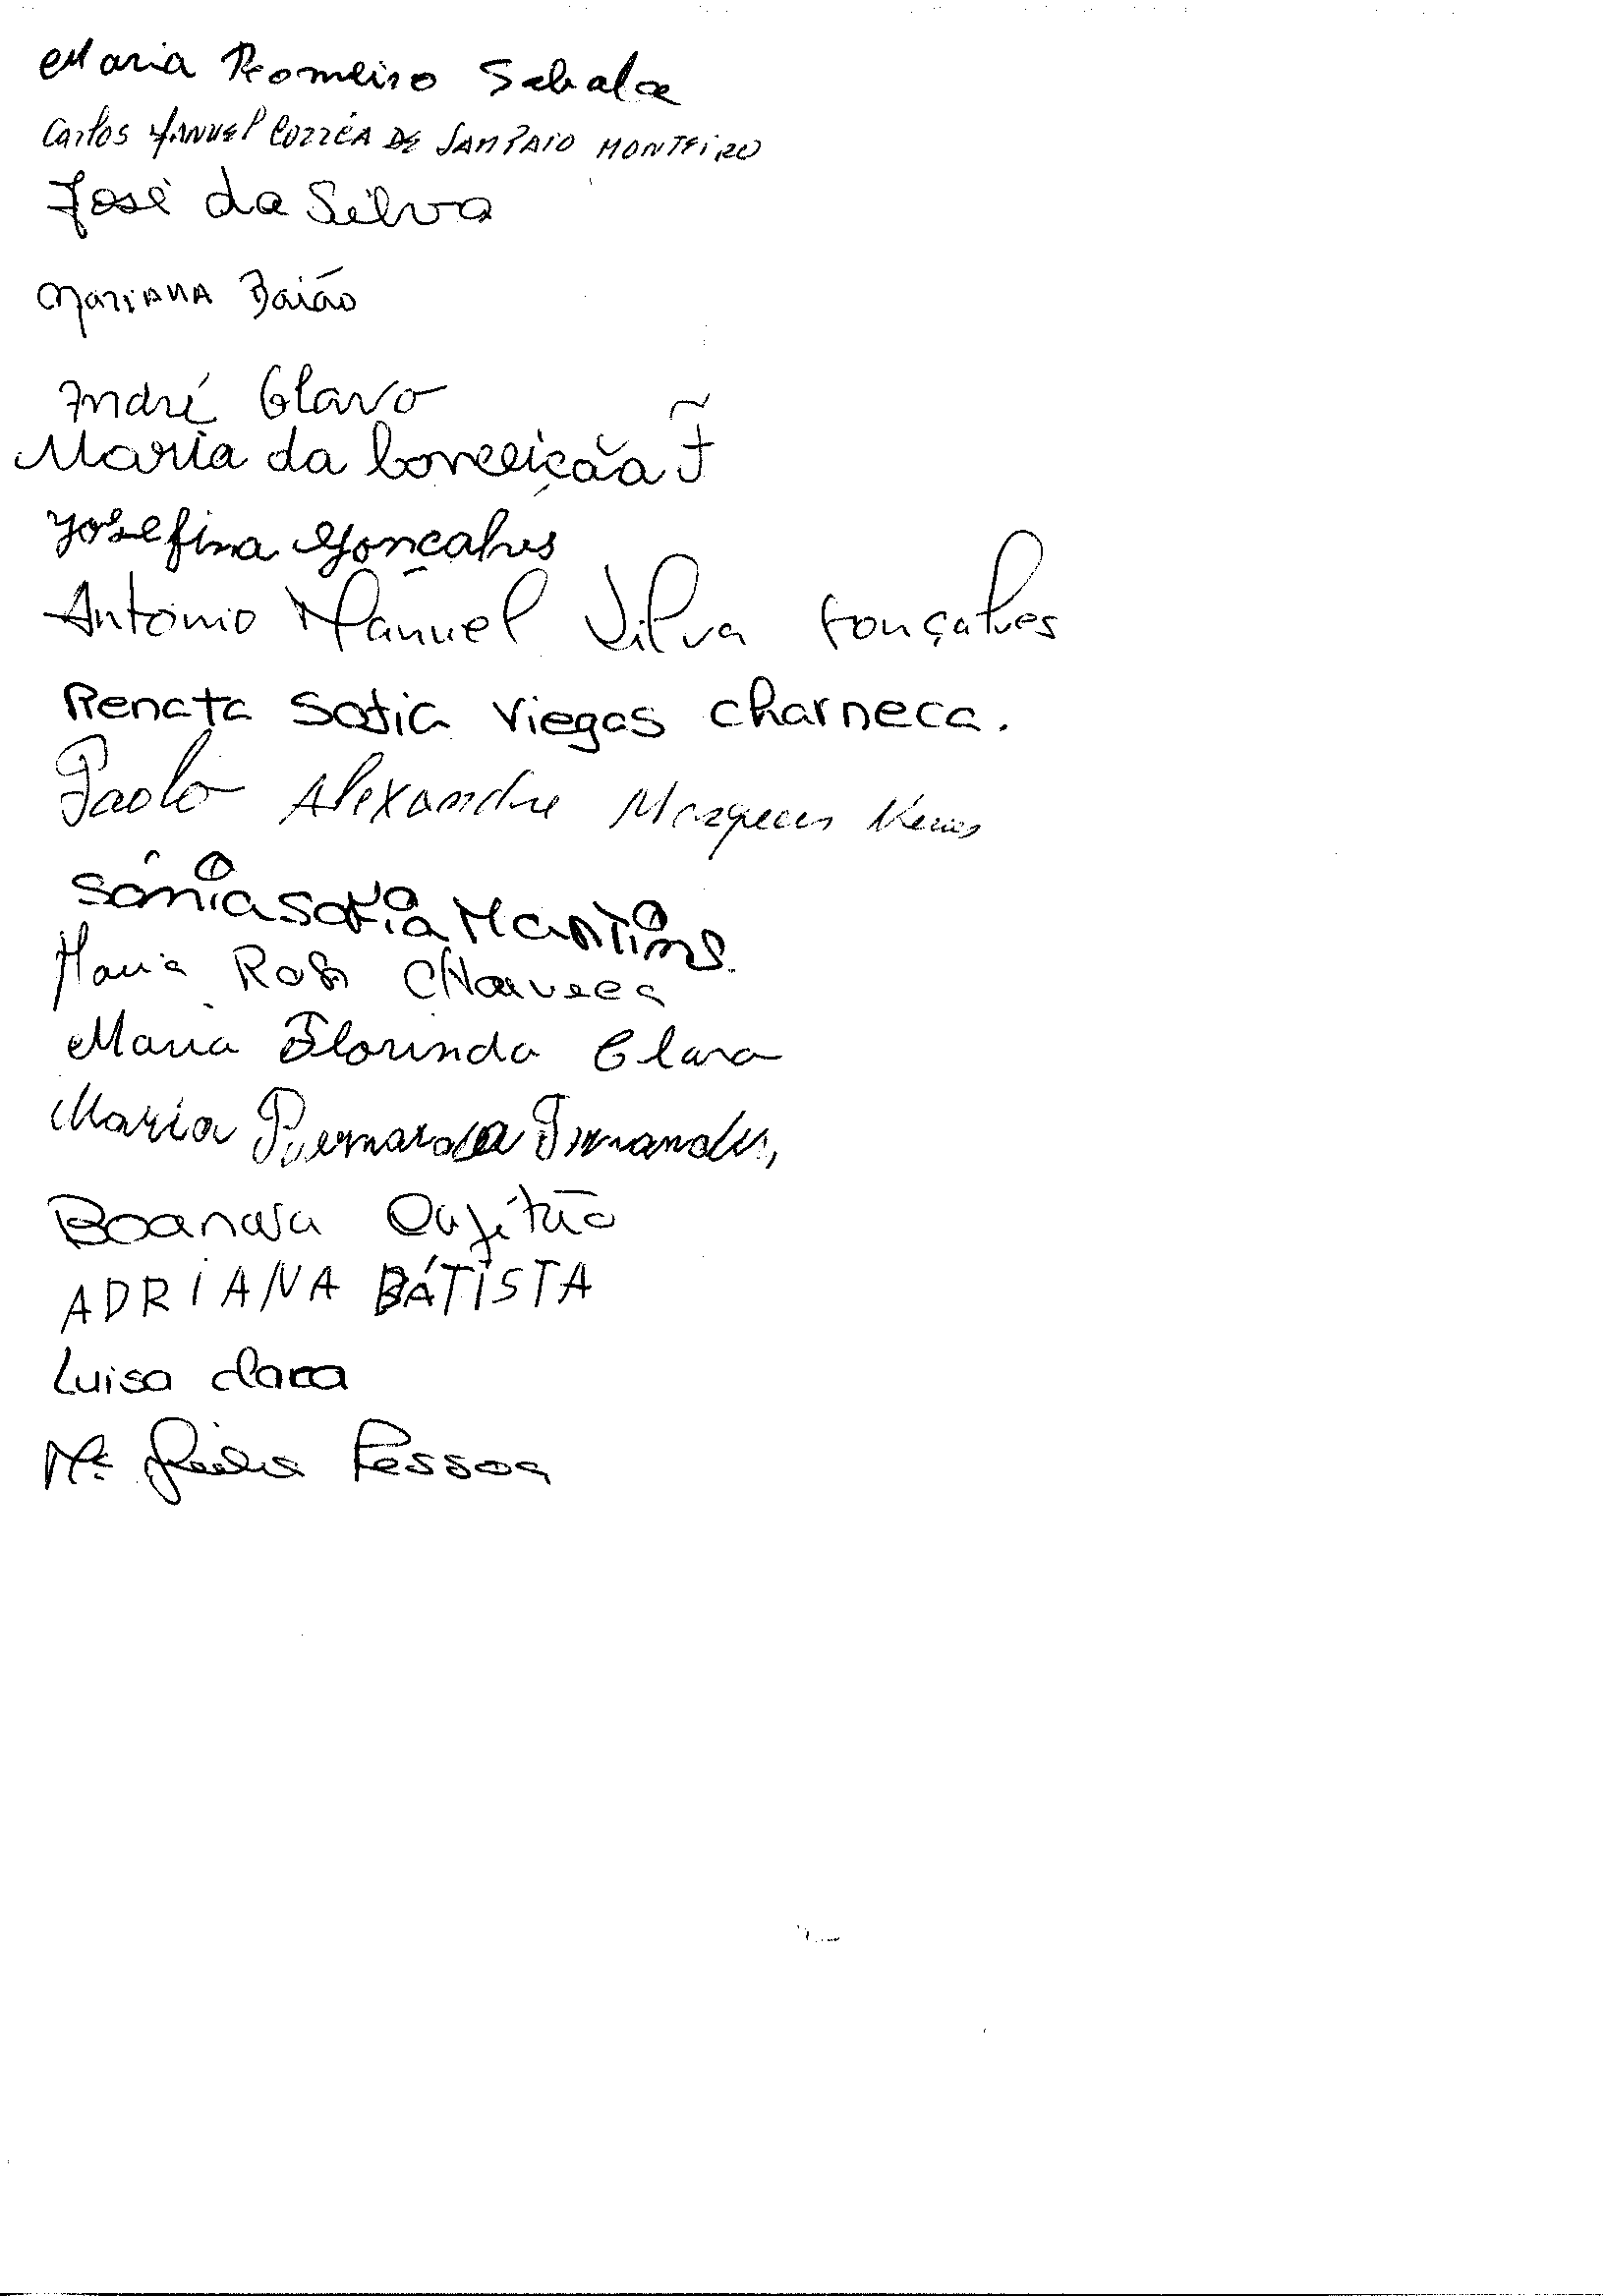 Maria Romeiro Sabala
Carlos MANUEL CORRÉA DE SAMPAIO MONTEIRO
José da Silva
Mariana Baião
André Claro
Maria da Conceição F
Josefina Gonçalves
António Manuel Silva Gonçalves
Renata Sofia Viegas Charneca.
Paolo Alexandre Marques
Sónia Sofia Martins.
Maria Rosa Charneca
Maria Florinda Clara
Maria Bernarda Fernandes,
ADRIANA BÁTISTA
Luisa Clara
Mª Pessoa